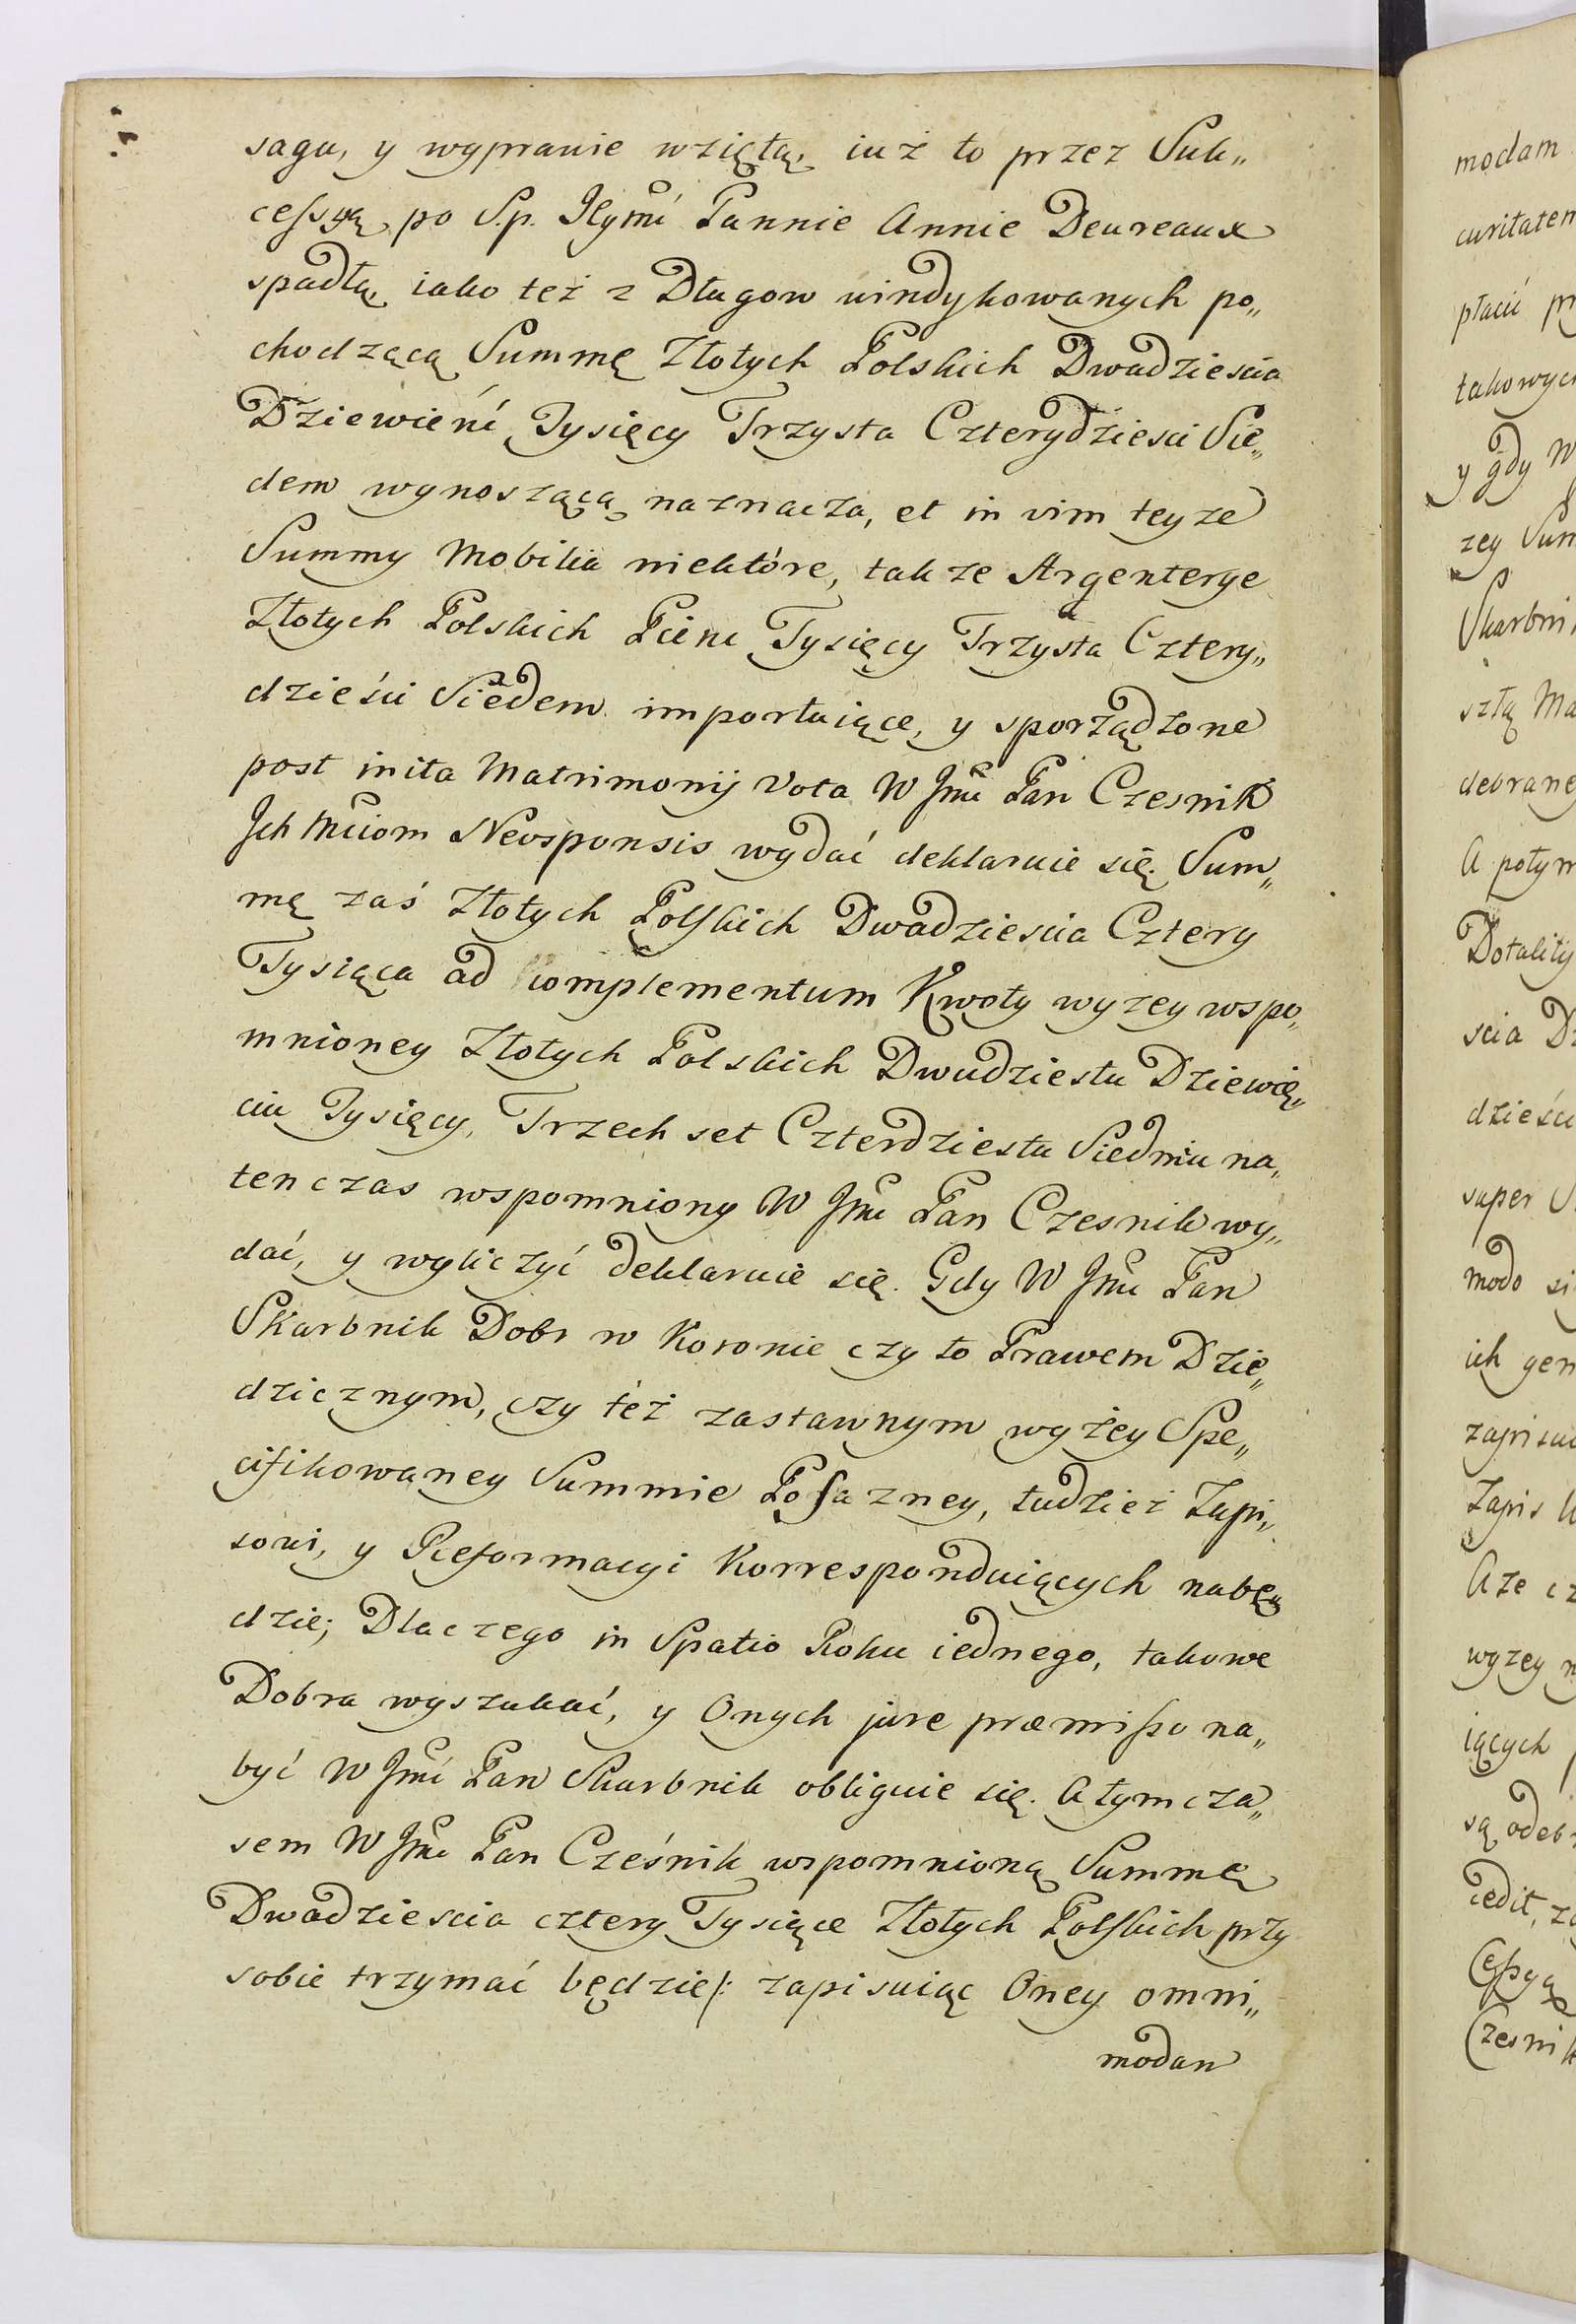 sagu, y wyprawie wziętą, iuż to przez Suk„
cessyą, po S.p. Jeymć Pannie Annie Deureaux
spadłą, iako też z Długow windykowanych po„
chodzącą Summę Złotych Polskich Dwadziescia
Dziewienć Tysięcy Trzysta Czterydziesci Sie„
dem wynoszącą naznacza, et in vim teyze
Summy Mobilia niektóre, takze Argenterye
Złotych Polskich Pienc Tysięcy Trzysta Cztery„
dzieści Siedem importuiące, y sporządzone
post inita Matrimonij Vota W Jmć Pan Czesnik
Ich Mciom Neosponsis wydać deklaruie się. Sum„
mę zaś Złotych Polskich Dwadziescia Cztery
Tysiąca ad complementum Kwoty wyzey wspo„
mnioney Złotych Polskich Dwudziestu Dziewię„
ciu Tysięcy, Trzech set Czterdziestu Siedmiu na„
tenczas wspomniony W Jmć Pan Czesnik wy„
dać, y wyliczyć deklaruie się. Gdy W Jmć Pan
Skarbnik Dobr w Koronie czy to Prawem Dzie„
dzicznym, czy też zastawnym wyżey Spe„
cifikowaney Summie Posazney, tudzież Zapi„
sowi, y Reformacyi Korresponduiących nabę„
dzie; Dlaczego in Spatio Roku iednego, takowe
Dobra wyszukać, y Onych jure præmisso na„
być W Jmć Pan Skarbnik obliguie się. A tymcza„
sem W Jmć Pan Cześnik wspomnioną Summę
Dwadziescia cztery Tysiące Złotych Polskich przy
sobie trzymać będzie/: zapisuiąc Oney omni„
modan
modam
curitatem
płacić
takowych
y gdy
zey Sum
Skarbni
szłą Ma
debraney
A potym
Dotality
scia
dzieści
super
modo
ich
Zapis
Aze
wyzey
iących
są
cedit,
Cessyą
Czesnik